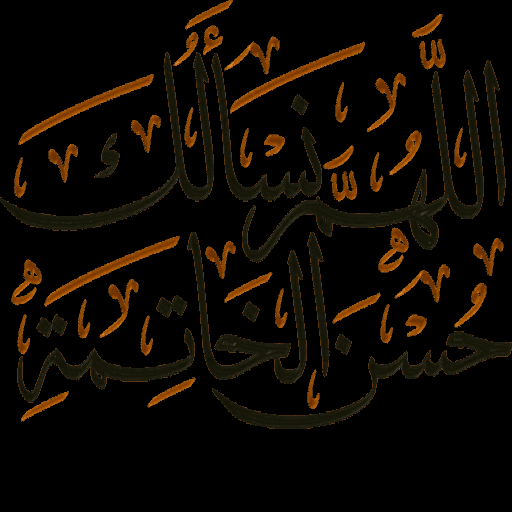 اللَّهُمَّ نَسْأَلُكَ
حُسْنَ الْخَاتِمَةِ